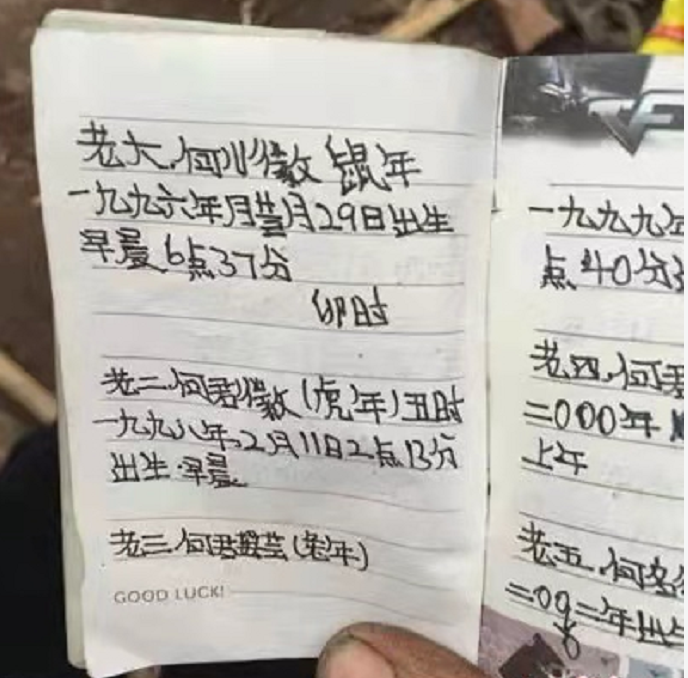 老大.何小微 鼠年
一九九六年月 月29日出生
早晨6点37分
卯时
老二.何君微(虎年)丑时
一九九八年.2月11日2点13分
出生.早晨
老三.何君 (年)
GOOD LUCK!
一九九九年
点40分
老四.何君
二000年
上午
老五.何
二00二年出生